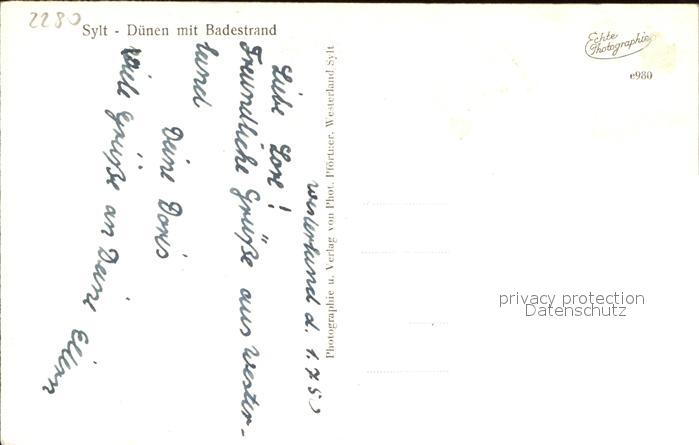 2280
Sylt - Dünen mit Badestrand
Echte
Photographie
e980
Westerland d. 1.7.50
Liebe Lore!
Freundliche Grüße aus Wester-
land
Deine Doris
Viele Grüße an Deine Eltern
Photographie u. Verlag von Phot. Pförtner, Westerland Sylt
privacy protection
Datenschutz